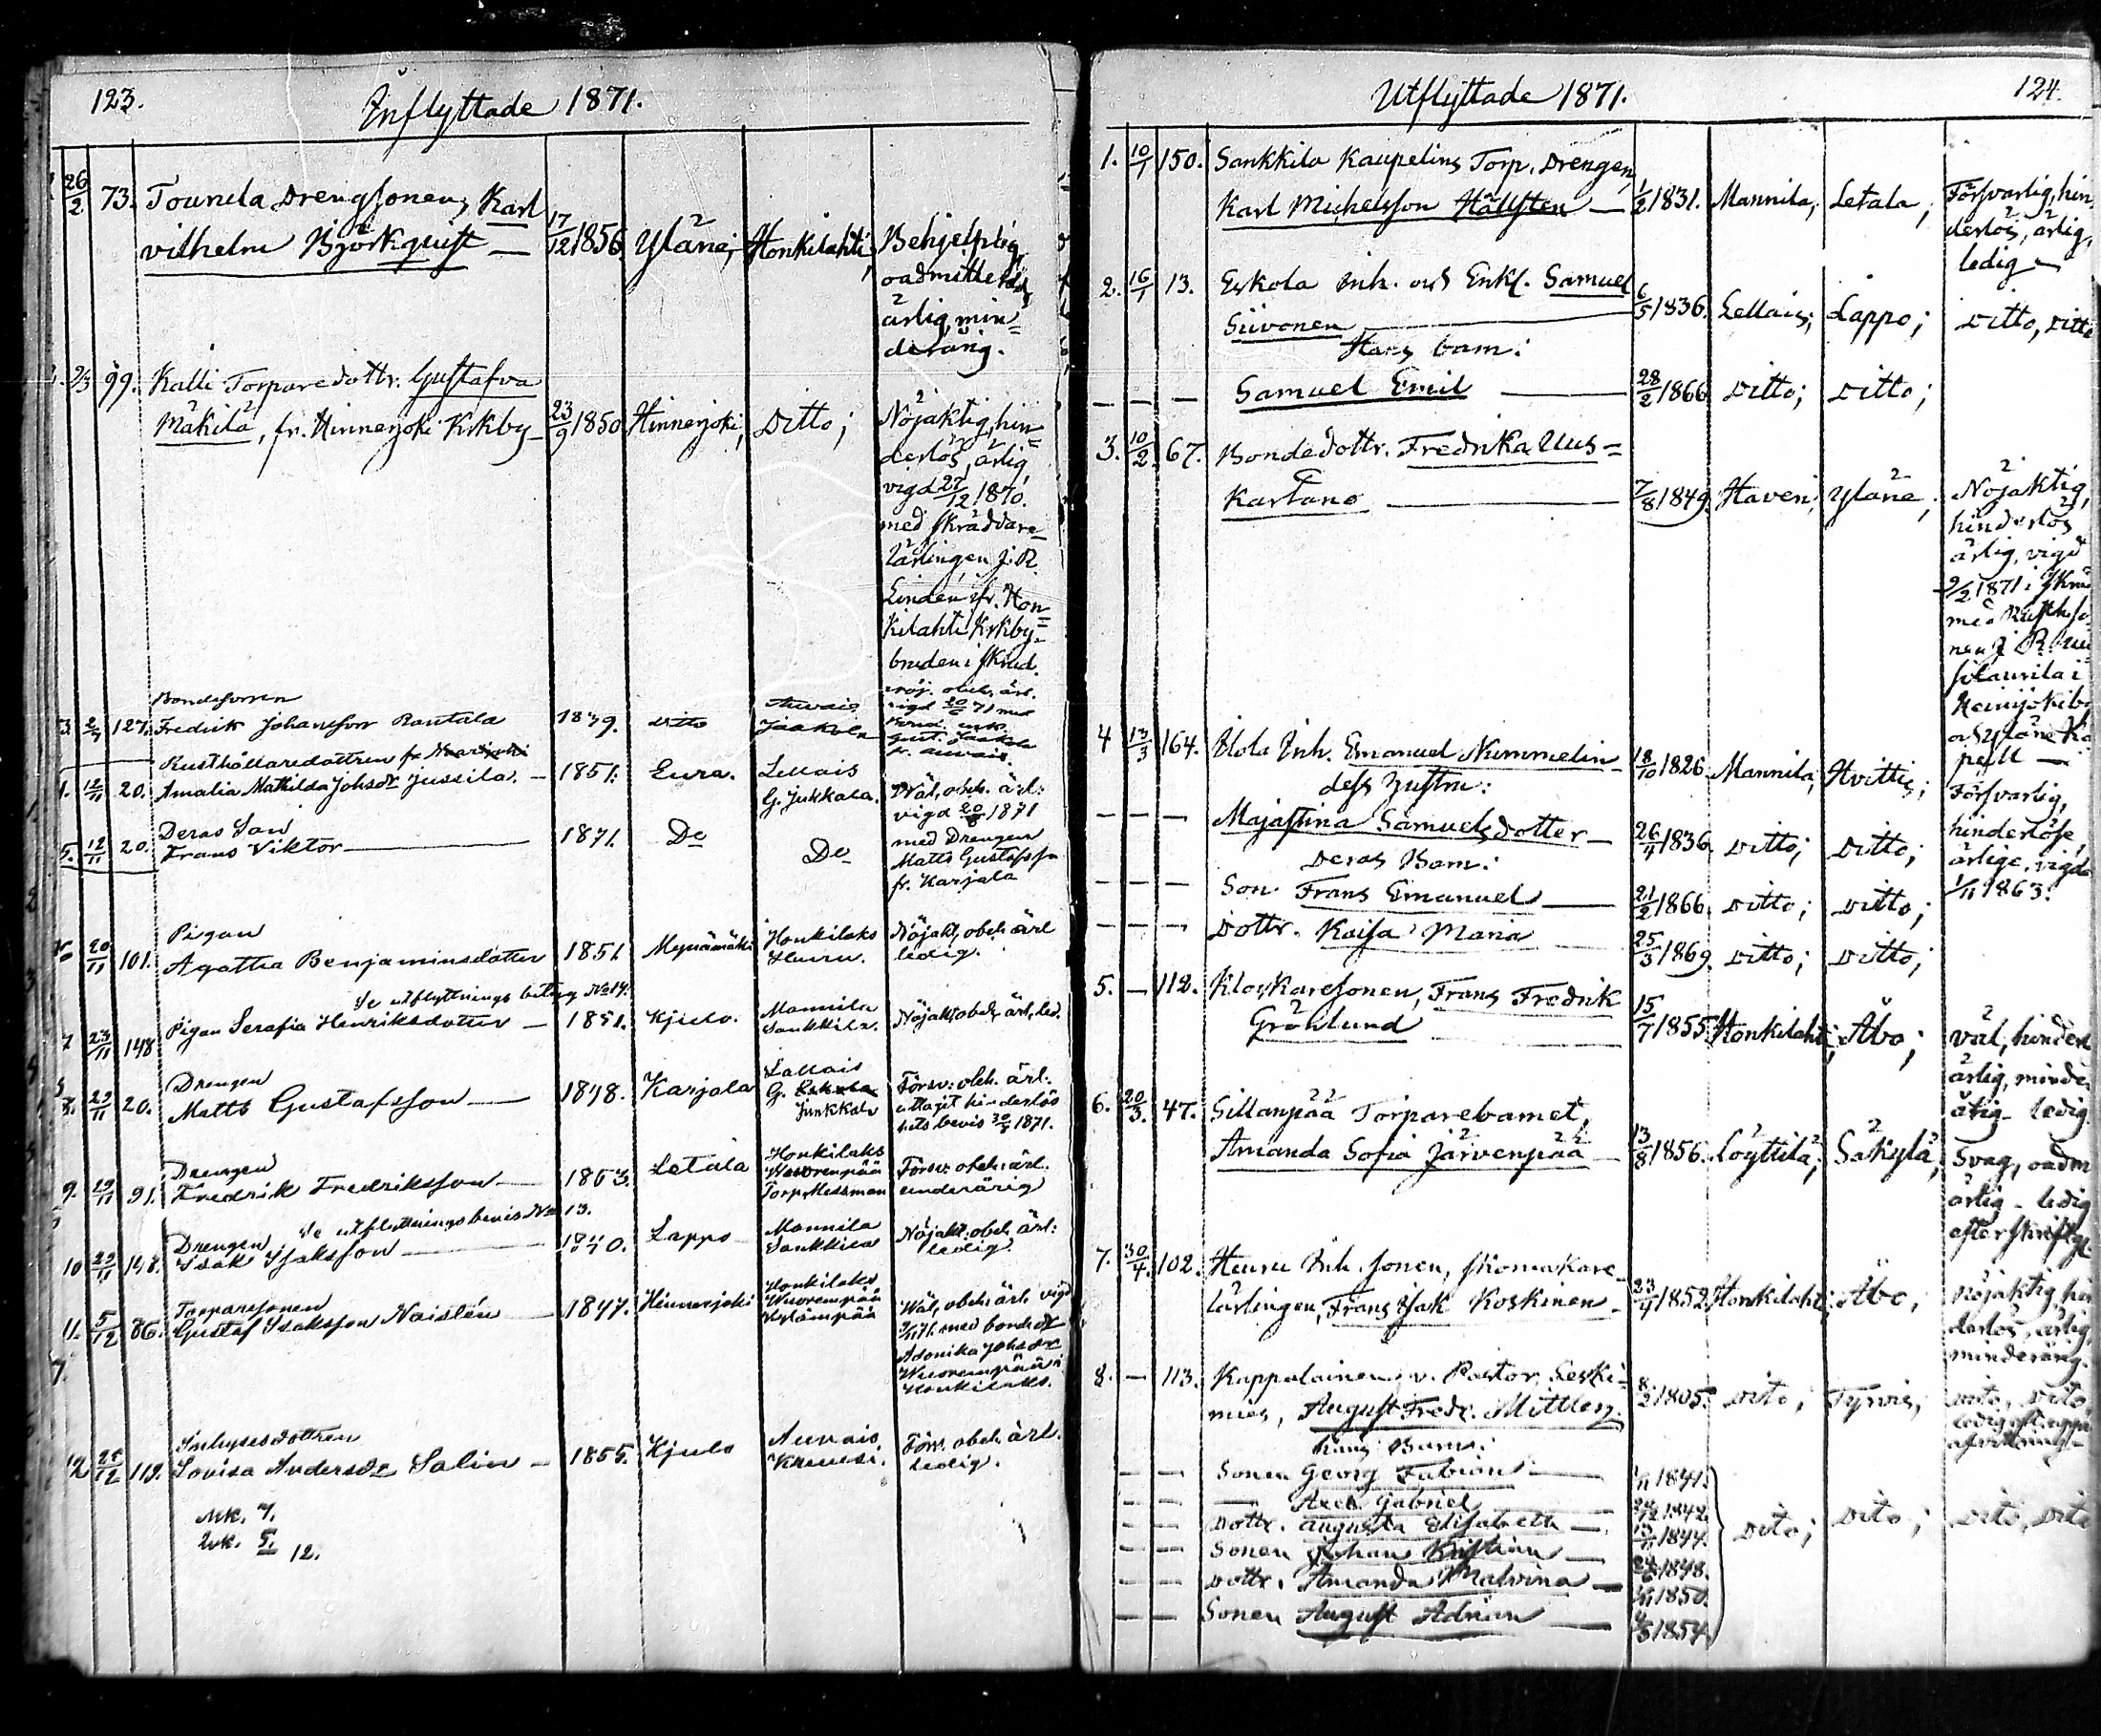 123.
Inflyttade 1871.
26/2 73. Tounela Drengsonen, Karl
vilhelm Björkquist — 17/12 1856. Yläne; Honkilahti; Behjelplig,
oadmitterad,
ärlig, min=
derårig.
2/3 99. Kalli Torparedottr. Gustafva
Mäkilä, fr. Hinnerjoki Krkby 23/9 1850 Hinnerjoki; Ditto; Nöjaktig, hin=
derlös, ärlig,
vigd 27/12 1870.
med skräddare=
lärlingen J. R.
Linden fr. Hon=
kilahti Krkby=
bruden i skrud.
Bondesonen
3. 2/4 127. Fredrik Johansson Rantala 1849. ditto Auvais Jaakola
nöj. obeh. ärl.
vigd
Gust. Jaakola
fr. Auvais.
Rusthållaredottren fr
4. 12/11 20. Amalia Mathilda Johsdr Jussila. — 1851. Eura. Lellais
G. Jukkala. Wäl, obeh. ärl:
vigd 20/8 1871
med Drengen
Matts Gustafsson
fr. Karjala
Deras Son
5. 12/11 20. Frans Viktor — 1871. Do Do
Pigan
20/11 101. Agatha Benjaminsdotter 1851. Mynämäki Honkilaks
Huuru. Nöjakt, obeh. ärl
ledig.
Se utflyttnings betyg No 14.
7 23/11 148 Pigan Serafia Henriksdotter — 1851. Kjulo. Mannila
Sankkila. Nöjakt, obeh. ärl, led.
Drengen
8. 29/11 20. Matts Gustafsson — 1848. Karjala Lellais
G.
Junkkala Försv: obeh. ärl:
uttagit hinderlös
hets bevis 30/7 1871.
Drengen
9. 29/11 91. Fredrik Fredriksson — 1853. Letala Honkilaks
Wuorenpää
Torp. Messman Försv. obeh. ärl.
underårig
Se utflyttnings bevis No 13.
Drengen
10 29/11 148. Isak Isaksson — 1840. Lappo Mannila
Sankkila Nöjakt. obeh. ärl:
ledig.
Torparesonen
11. 5/12 86. Gustaf Isaksson Naislén — 1847. Hinnerjoki Honkilaks
Wuorenpää
Kylänpää Wäl, obeh. ärl. vigd
med bonded
Adonika Johsdr
Wuorenpää i
Honkilaks.
Inhysesdottren
12 28/12 119. Lovisa Andersdr Salin — 1855. Kjulo Auvais
Kreuusi. Försv. obeh. ärl.
ledig.
Mk. 7.
Qvk. 5.
12.
Utflyttade 1871.
124.
1. 10/1 150. Sankkila Kaupelins Torp. Drengen,
Karl Michelsson Hällsten — 1/2 1831. Mannila; Letala; Försvarlig, hin
derlös, ärlig,
ledig —
2. 16/1 13. Eskola Inh. och Enkl. Samuel
Siivonen — 6/5 1836. Lellais; Lappo; Ditto, Ditto
Hans barn:
— — — Samuel Emil — 28/2 1866 Ditto; Ditto;
3. 10/2 67. Bondedottr. Fredrika Uus=
Kartano — 7/8 1849. Haveri; Yläne; Nöjaktig,
hinderlös
ärlig, vigd
9/2 1871 i skrud
med Rusth.so
nen J. R.
i
Heinijoki by
a Yläne Ka
pell —
4 13/3 164. Ulola Inh. Emanuel Nummelin 18/10 1826. Mannila; Hvittis;
dess hustru:
Försvarlig,
hinderlöse,
ärlige, vigda
1/11 1863.
— — — Majastina Samuelsdotter — 26/4 1836. Ditto; Ditto;
Deras Barn:
— — — Son Frans Emanuel — 21/2 1866. Ditto; Ditto;
— — — Dottr. Kaisa Maria 25/3 1869. Ditto; Ditto;
5. — 112. Klockaresonen, Frans Fredrik
Grönlund — 15/7 1855. Honkilahti; Åbo; väl, hinderl
ärlig, minder
årig - ledig.
6. 20/3. 47. Sillanpää Torparebarnet,
Amanda Sofia Järvenpää 13/8 1856. Löyttilä; Säkylä; Svag, oadm
ärlig - ledig
efter skriftg.
7. 30/4. 102. Huuru Inh. sonen, skomakare
lärlingen, Frans Isak Koskinen — 23/4 1852. Honkilahti; Åbo; Nöjaktig, hin
derlös, ärlig,
minderårig.
8. — 113. Kappalainen, v. Pastor, Leski=
mies, August Fredr. Mittler. 8/2 1805. Dito; Tyrvis; Dito, Dito,
Hans Barn:
— — Sonen Georg Fabian — 1841.
— — — Axel Gabriel 1842.
— — Dottr. Augusta Elisabeth — 1844.
— — Sonen Johan Kristian — 1848. Dito; Dito; Dito, Dito
— — Dottr. Amanda Malvina — 1850.
— — Sonen August Adrian — 1854.